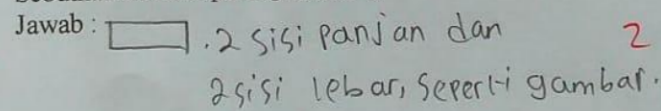 Jawab : . 2 sisi panjan dan 2
2 sisi lebar, seperti gambar.